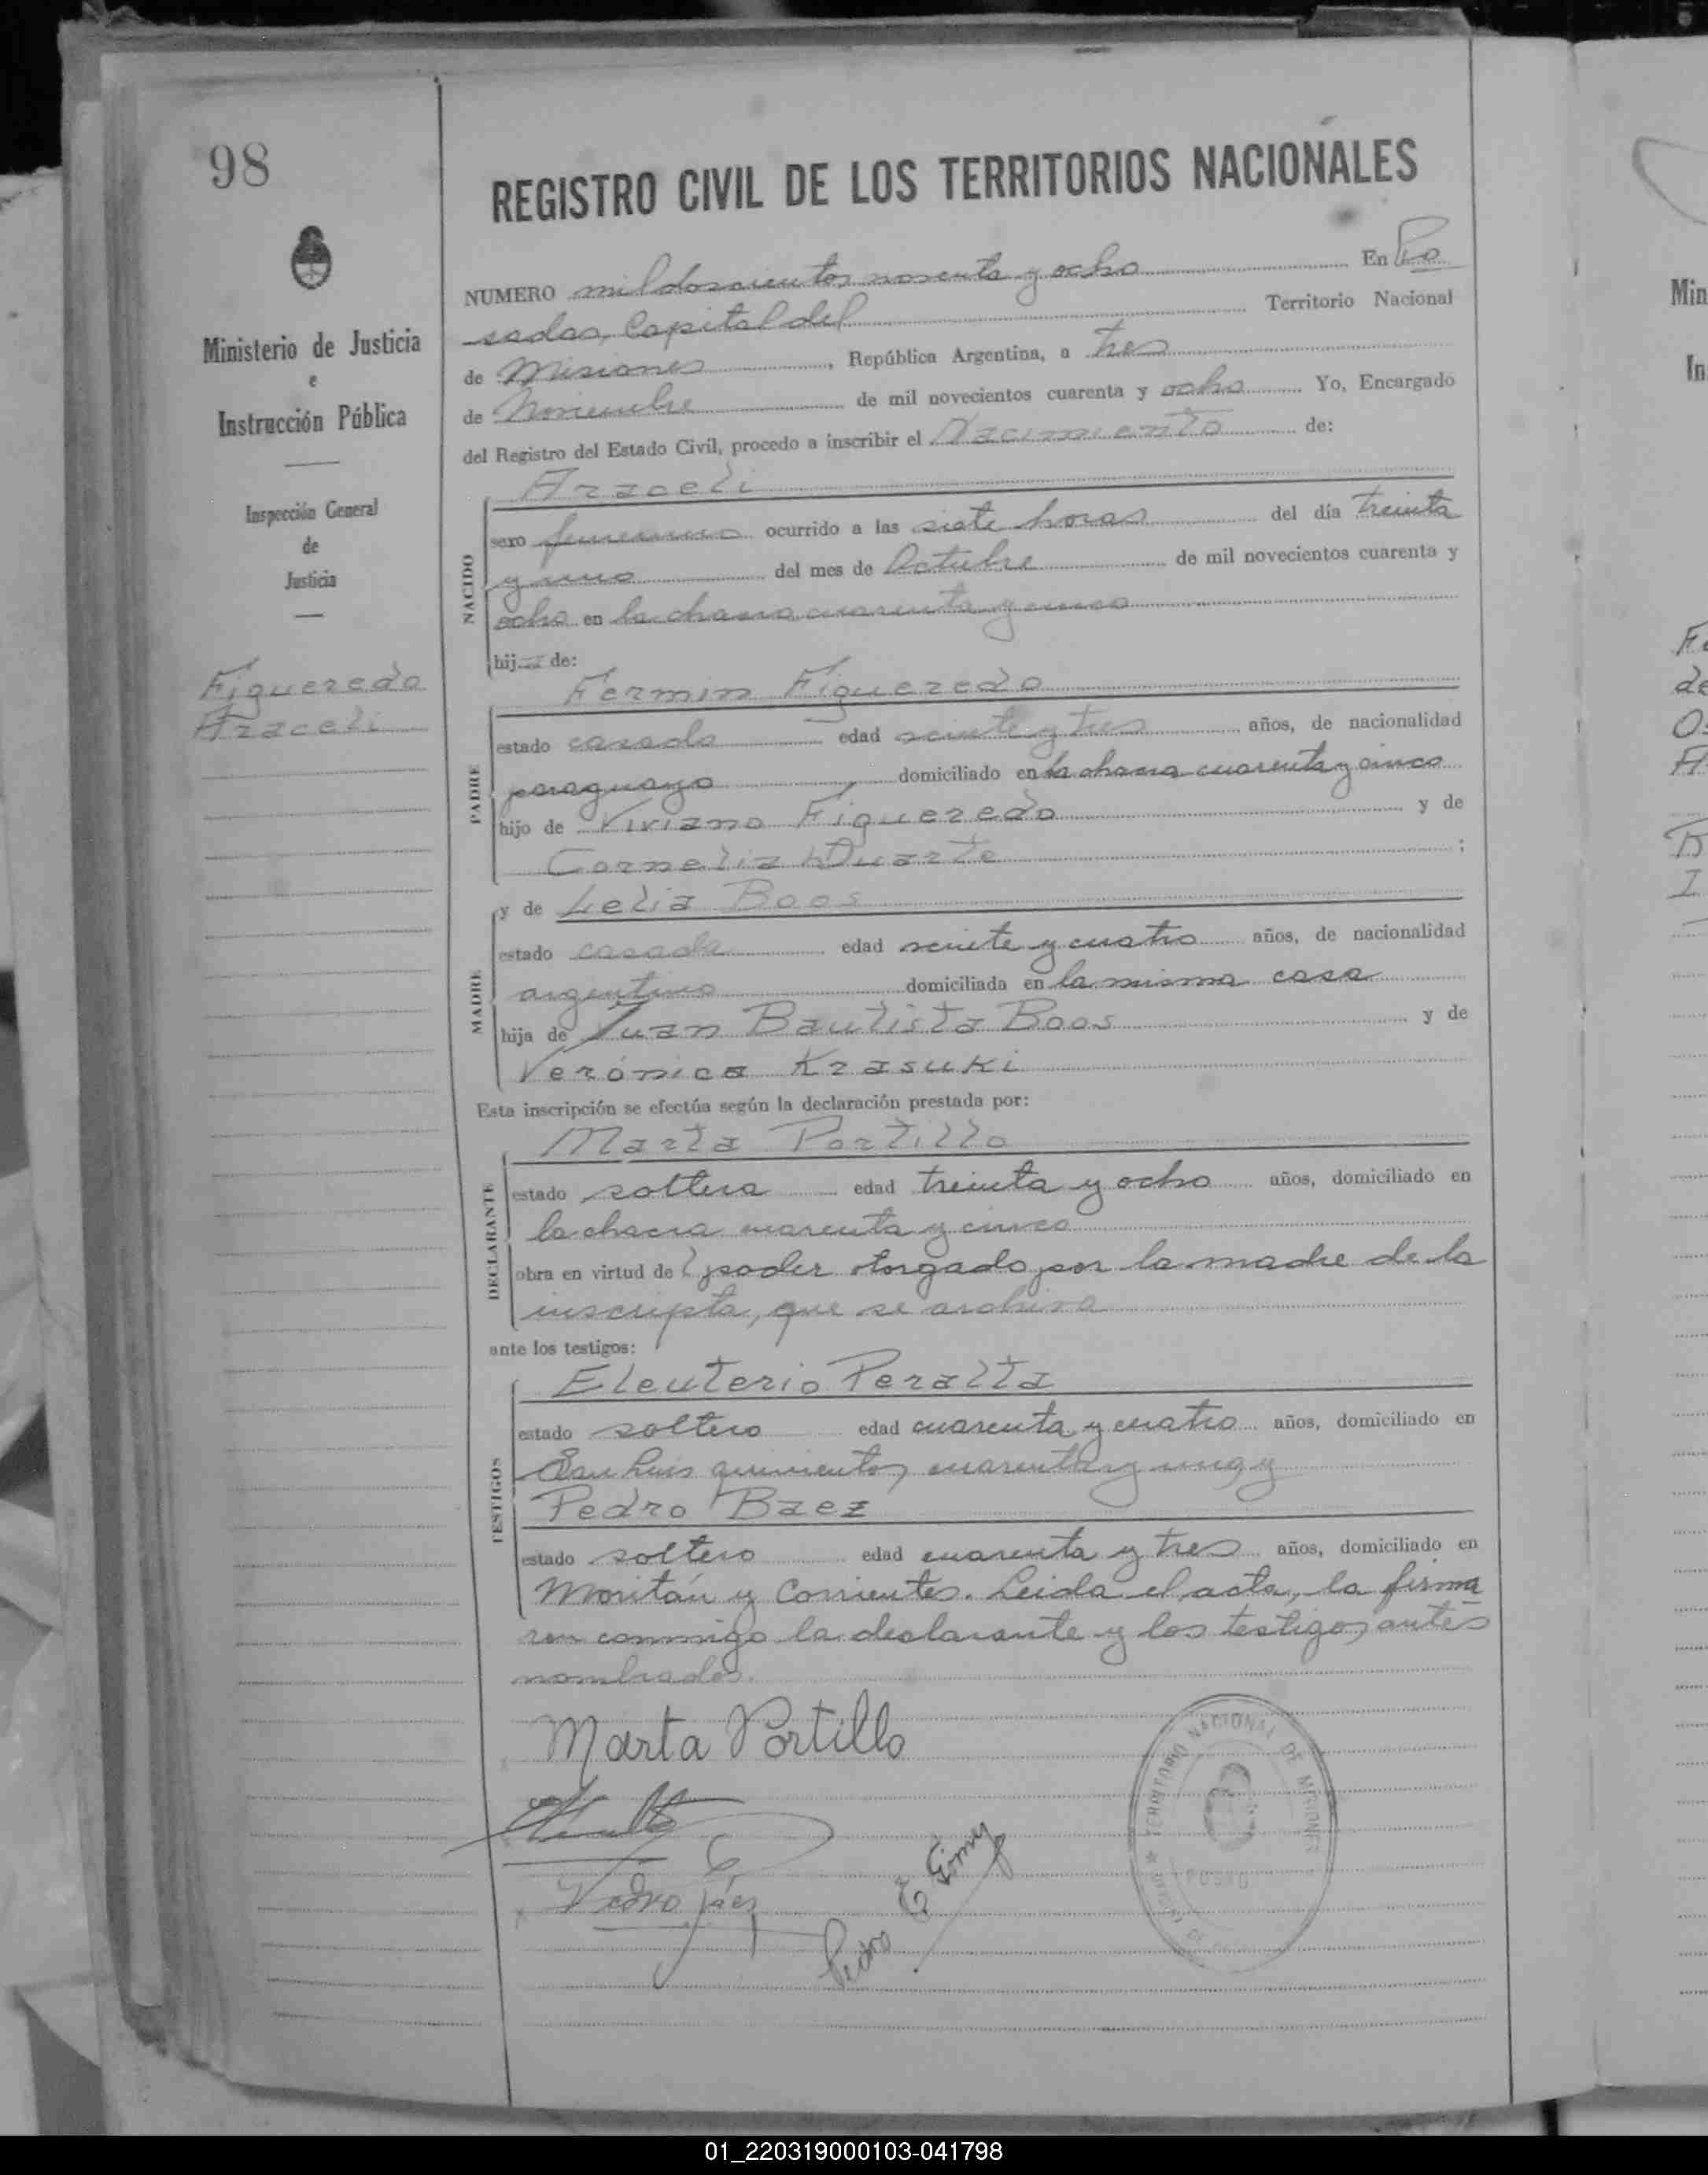 98
REGISTRO CIVIL DE LOS TERRITORIOS NACIONALES
NUMERO mil doscientos noventa y ocho En Po
sadas, Capital del Territorio Nacional
de Misiones, República Argentina, a tres
de Noviembre de mil novecientos cuarenta y ocho Yo, Encargado
del Registro del Estado Civil, procedo a inscribir el Nacimiento de:
Araceli
sexo femenino ocurrido a las siete horas del día treinta
y uno del mes de Octubre de mil novecientos cuarenta y
ocho en la chacra cuarenta y cinco
hij de:
NACIDO
Fermin Figueredo
estado casado edad veinte y tres años, de nacionalidad
paraguayo domiciliado en la chacra cuarenta y cinco
hijo de Viviano Figueredo y de
Cornelia Duarte ;
PADRE
y de Lelia Boos
estado casada edad veinte y cuatro años, de nacionalidad
argentina domiciliada en la misma casa
hija de Juan Bautista Boos y de
Verónica Krasuki
MADRE
Esta inscripción se efectúa según la declaración prestada por:
Marta Portillo
estado soltera edad treinta y ocho años, domiciliado en
la chacra cuarenta y cinco
obra en virtud de poder otorgado por la madre de la
inscripta, que se archiva
DECLARANTE
ante los testigos:
Eleuterio Peralta
estado soltero edad cuarenta y cuatro años, domiciliado en
San Luis quinientos cuarenta y uno, y
Pedro Baez
estado soltero edad cuarenta y tres años, domiciliado en
Moritán y Corrientes. Leida el acta, la firma
ron conmigo la declarante y los testigos antes
nombrados.
TESTIGOS
Marta Portillo
Pedro E Gomez
TERRITORIO NACIONAL DE MISIONES
Ministerio de Justicia
e
Instrucción Pública
Inspección General
de
Justicia
Figueredo
Araceli
Min
In
01_220319000103-041798